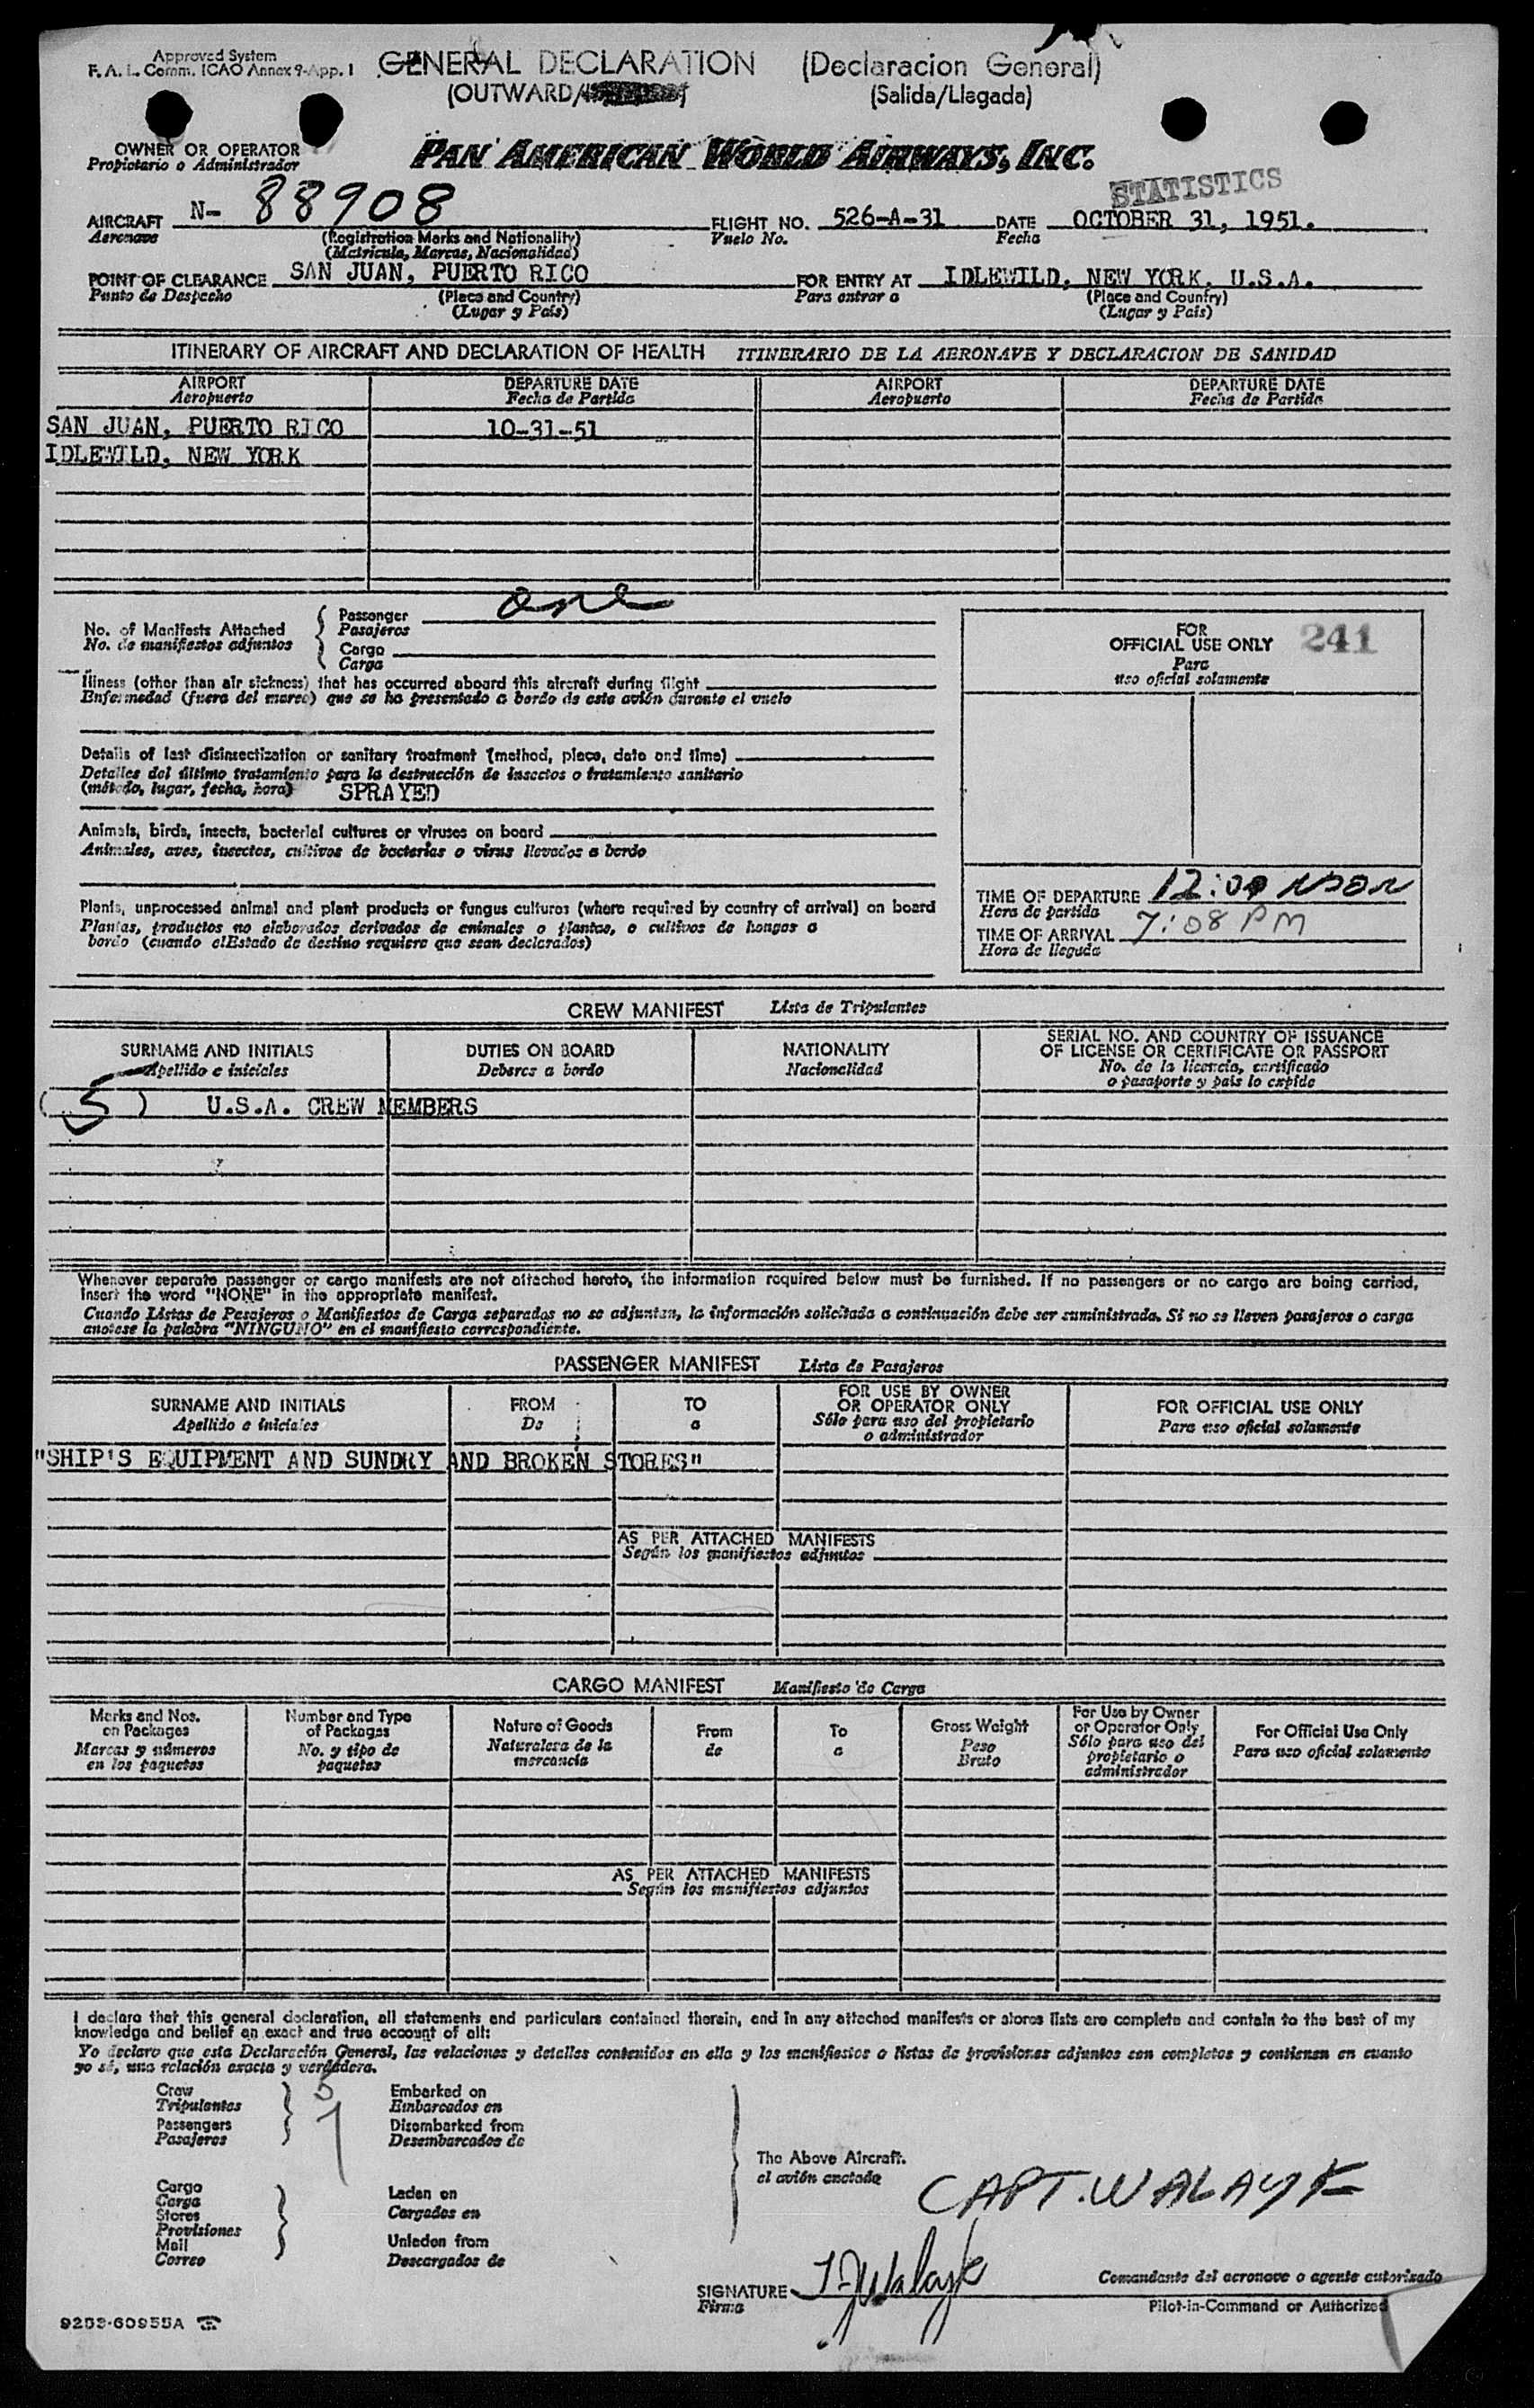 Approved System
F. A. L. Comm. ICAO Annex 9-App. 1
GENERAL DECLARATION (Declaracion General)
(OUTWARD/
(Salida/Llegada)
OWNER OR OPERATOR
Propietario o Administrador
PAN AMERICAN WORLD AIRWAYS, INC.
STATISTICS
AIRCRAFT N- 88908 FLIGHT NO. 526-A-31 DATE OCTOBER 31, 1951.
Aeronave (Registration Marks and Nationality) Vuelo No. Fecha
(Matricula, Marcas, Nacionalidad)
POINT OF CLEARANCE SAN JUAN, PUERTO RICO FOR ENTRY AT IDLEWILD, NEW YORK, U.S.A.
Punto de Despacho (Place and Country) Para entrar a (Place and Country)
(Lugar y Pais) (Lugar y Pais)
ITINERARY OF AIRCRAFT AND DECLARATION OF HEALTH ITINERARIO DE LA AERONAVE Y DECLARACION DE SANIDAD
AIRPORT DEPARTURE DATE AIRPORT DEPARTURE DATE
Aeropuerto Fecha de Partida Aeropuerto Fecha de Partida
SAN JUAN, PUERTO RICO 10-31-51
IDLEWILD, NEW YORK
No. of Manifests Attached
No. de manifiestos adjuntos
Passenger one
Pasajeros
Cargo
Carga
Illness (other than air sickness) that has occurred aboard this aircraft during flight
Enfermedad (fuera del mareo) que se ha presentado a bordo de este avión durante el vuelo
Details of last disinsectization or sanitary treatment (method, place, date and time)
Detalles del último tratamiento para la destrucción de insectos o tratamiento sanitario
(método, lugar, fecha, hora) SPRAYED
Animals, birds, insects, bacterial cultures or viruses on board
Animales, aves, insectos, cultivos de bacterias o virus llevados a bordo
Plants, unprocessed animal and plant products or fungus cultures (where required by country of arrival) on board
Plantas, productos no elaborados derivados de animales o plantas, o cultivos de hongos a
bordo (cuando elEstado de destino requiere que sean declarados)
FOR
OFFICIAL USE ONLY 241
Para
uso oficial solamente
TIME OF DEPARTURE 12:00 NOON
Hora de partida
TIME OF ARRIVAL 7:08 PM
Hora de llegada
CREW MANIFEST Lista de Tripulantes
SURNAME AND INITIALS
Apellido e iniciales
DUTIES ON BOARD
Deberes a bordo
NATIONALITY
Nacionalidad
SERIAL NO. AND COUNTRY OF ISSUANCE
OF LICENSE OR CERTIFICATE OR PASSPORT
No. de la licencia, certificado
o pasaporte y pais lo expide
( 5 ) U.S.A. CREW MEMBERS
Whenever separate passenger or cargo manifests are not attached hereto, the information required below must be furnished. If no passengers or no cargo are being carried,
insert the word "NONE" in the appropriate manifest.
Cuando Listas de Pasajeros o Manifiestos de Carga separadas no se adjuntan, la información solicitada a continuación debe ser suministrada. Si no se lleven pasajeros o carga
anotese la palabra "NINGUNO" en el manifiesto correspondiente.
PASSENGER MANIFEST Lista de Pasajeros
SURNAME AND INITIALS
Apellido e iniciales
FROM
De
TO
a
FOR USE BY OWNER
OR OPERATOR ONLY
Sólo para uso del propietario
o administrador
FOR OFFICIAL USE ONLY
Para uso oficial solamente
"SHIP'S EQUIPMENT AND SUNDRY AND BROKEN STORES"
AS PER ATTACHED MANIFESTS
Según los manifiestos adjuntos
CARGO MANIFEST Manifiesto de Carga
Marks and Nos.
on Packages
Marcas y números
en los paquetes
Number and Type
of Packages
No. y tipo de
paquetes
Nature of Goods
Naturaleza de la
mercancia
From
de
To
a
Gross Weight
Peso
Bruto
For Use by Owner
or Operator Only
Sólo para uso del
propietario o
administrador
For Official Use Only
Para uso oficial solamente
AS PER ATTACHED MANIFESTS
Según los manifiestos adjuntos
I declare that this general declaration, all statements and particulars contained therein, and in any attached manifests or stores lists are complete and contain to the best of my
knowledge and belief an exact and true account of all:
Yo declaro que esta Declaración General, las relaciones y detalles contenidos en ella y los manifiestos o listas de provisiones adjuntos son completos y contienen en cuanto
yo sé, una relación exacta y verdadera.
Crew 5
Tripulantes
Passengers
Pasajeros
Embarked on
Embarcados en
Disembarked from
Desembarcados de
Cargo
Carga
Stores
Provisiones
Mail
Correo
Laden on
Cargados en
Unladen from
Descargados de
The Above Aircraft.
el avión anotado
CAPT. WALAYK
SIGNATURE
Firma
Comandante del aeronave o agente autorizado
Pilot-in-Command or Authorized
9253-60955A